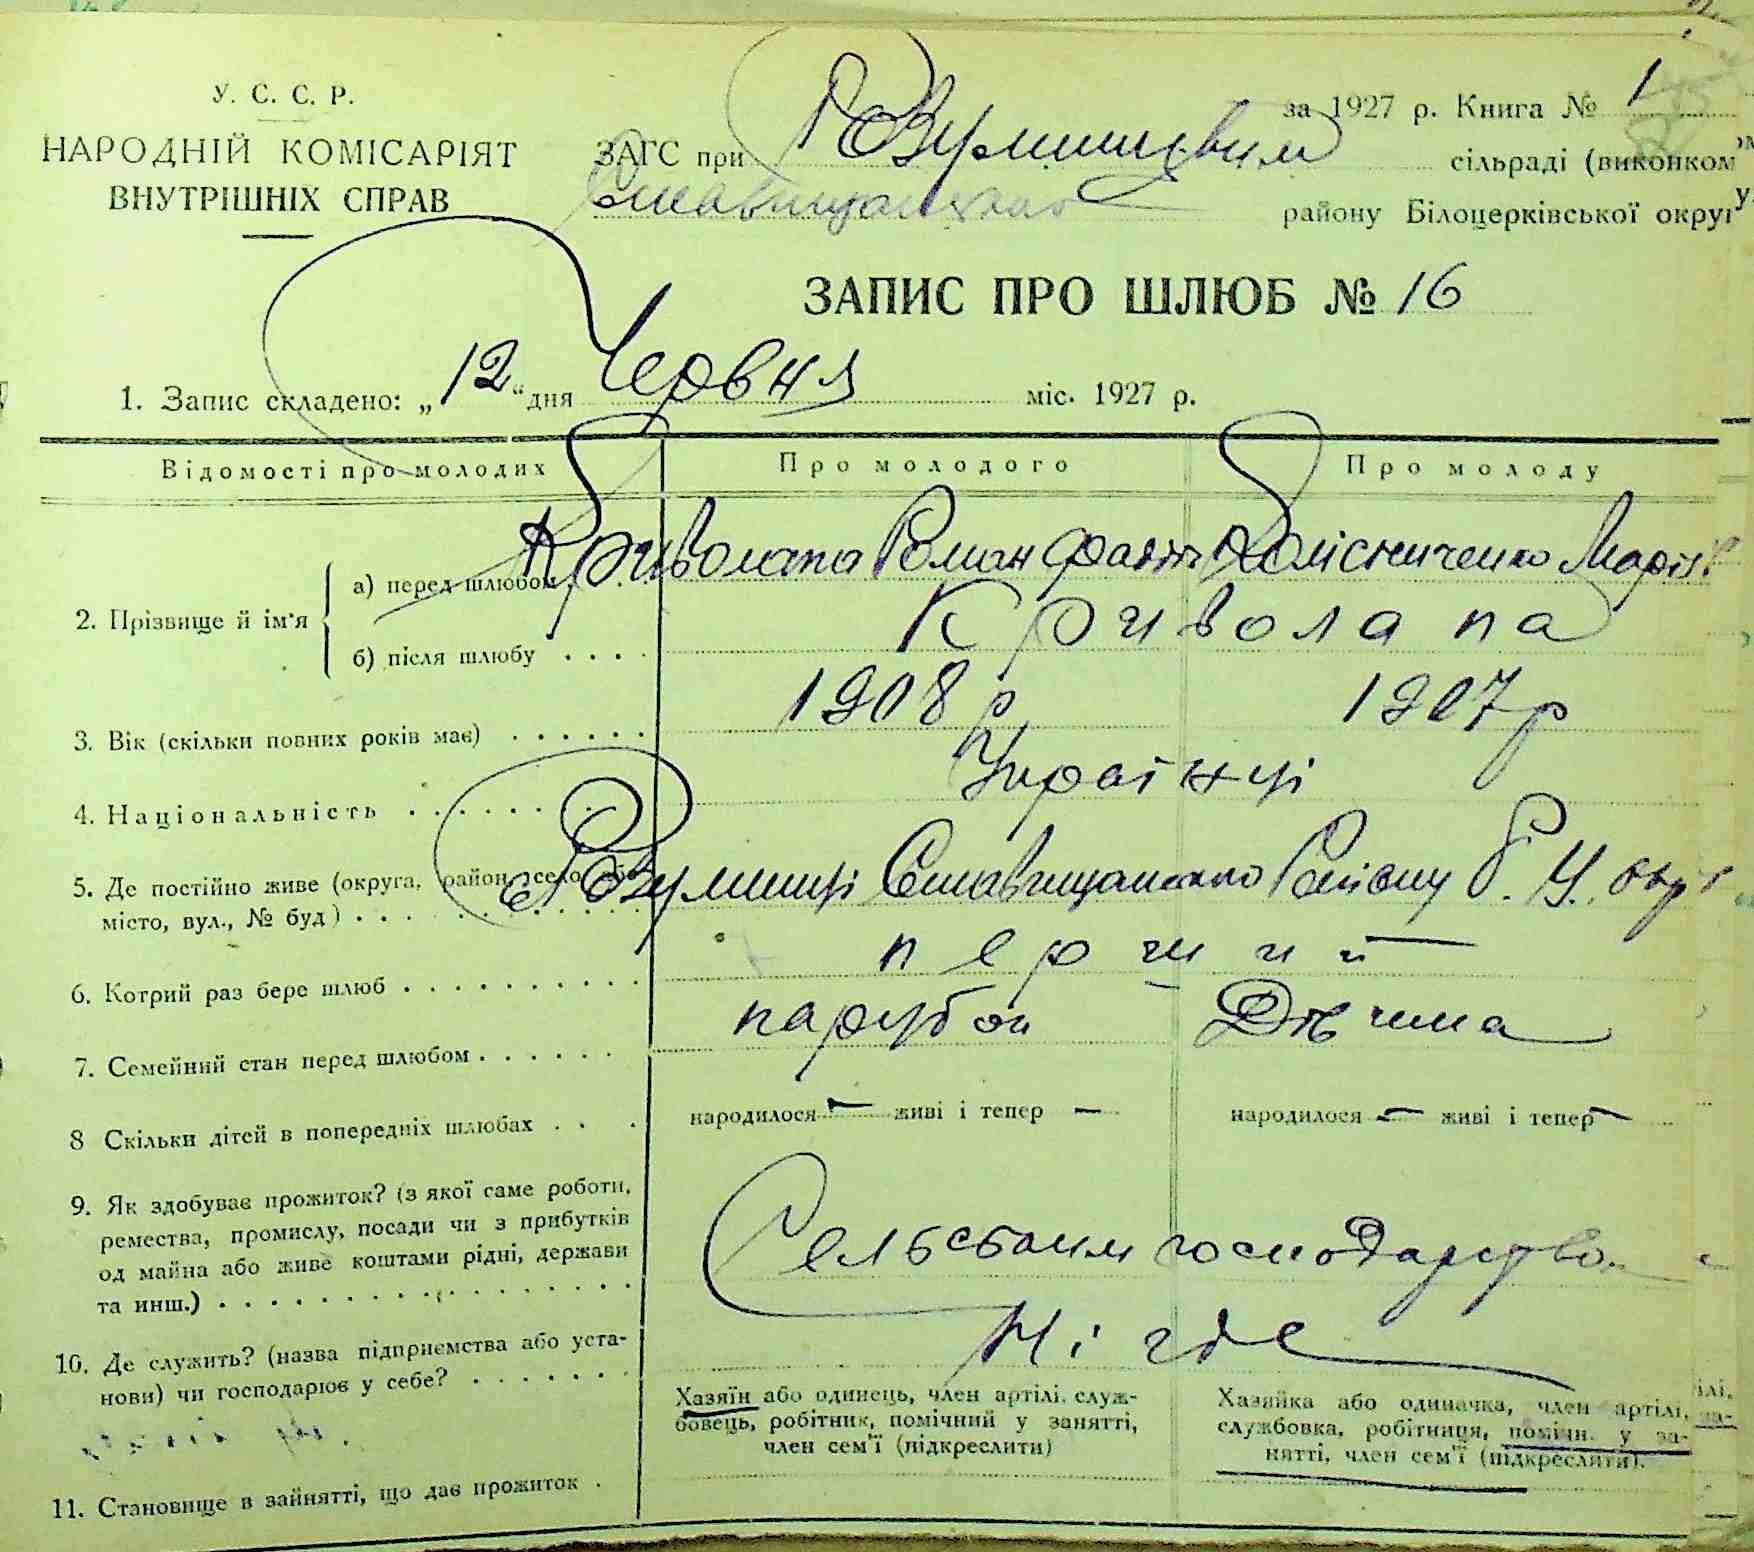 У. С. С. Р.
НАРОДНІЙ КОМІСАРІЯТ
ВНУТРІШНІХ СПРАВ
за 1927 р. Книга № 1
ЗАГС при сільраді (виконком
району Білоцерківської округ
ЗАПИС ПРО ШЛЮБ № 16
1. Запис складено: „12“ дня Червня міс. 1927 р.
Відомості про молодих Про молодого Про молоду
2. Прізвище й ім'я
а) перед шлюбом Криволапа Роман Колісниченко Марія
б) після шлюбу Криволапа
3. Вік (скільки повних років має) 1908 р 1907 р
4. Національність Українці
5. Де постійно живе (округа, район, село або
місто, вул., № буд) с. Розумниці Ставищанского Району Б. Ц. окр
6. Котрий раз бере шлюб перчий
7. Семейний стан перед шлюбом парубок Дівчина
8 Скільки дітей в попередніх шлюбах народилося — живі і тепер — народилося — живі і тепер —
9. Як здобуває прожиток? (з якої саме роботи,
ремества, промислу, посади чи з прибутків
од майна або живе коштами рідні, держави
та инш.) Сельським господарством
10. Де служить? (назва підприємства або уста-
нови) чи господарює у себе? Нігде
11. Становище в зайнятті, що дає прожиток
Хазяїн або одинець, член артілі, служ-
бовець, робітник, помічний у занятті,
член сем'ї (підкреслити)
Хазяйка або одиначка, член артілі,
службовка, робітниця, помічн. у за-
нятті, член сем'ї (підкреслити).